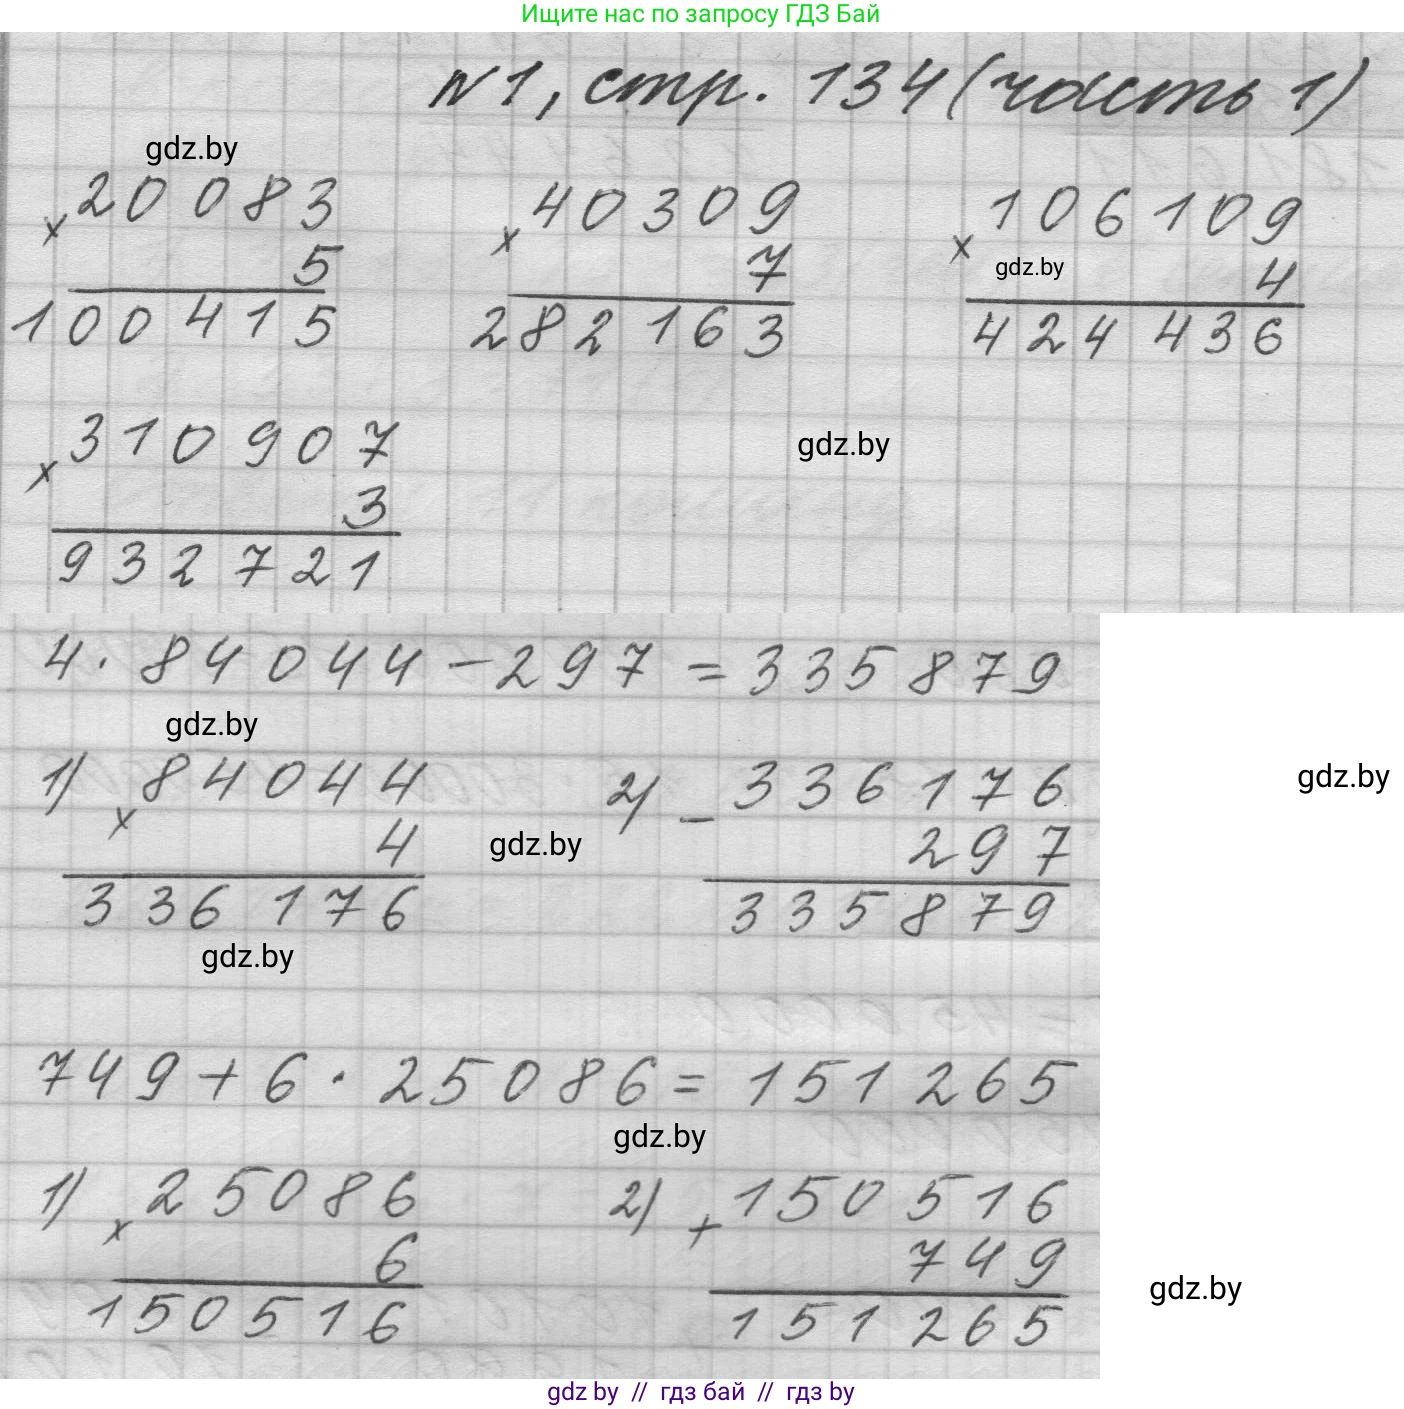 Ищите нас по запросу ГДЗ Бай
N1, стр. 134 (часть 1)
gdz.by
× 20083
5
100415
× 40309
7
282163
× 106109
gdz.by
4
424436
× 310907
3
932721
gdz.by
4 · 84044 − 297 = 335879
gdz.by
1) × 84044
4
336176
gdz.by
2) − 336176
297
335879
gdz.by
gdz.by
749 + 6 · 25086 = 151265
gdz.by
1) × 25086
6
150516
2) + 150516
749
151265
gdz.by
gdz by // гдз бай // гдз by